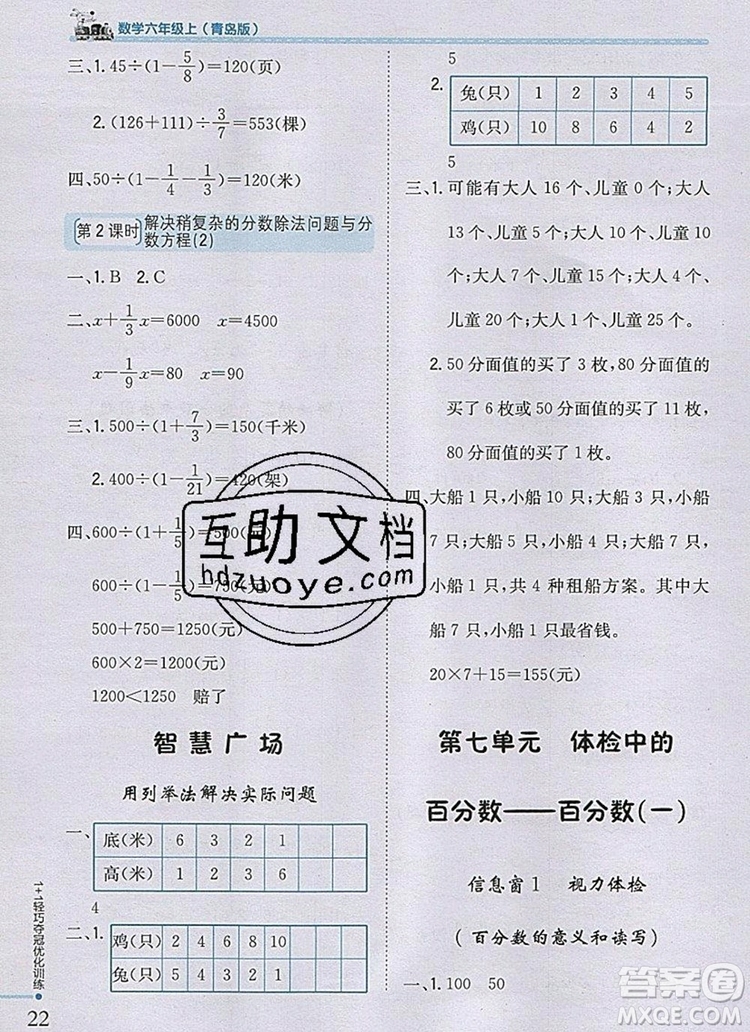 数学六年级上(青岛版)
三、1. 45÷(1-5/8)=120(页)
2. (126+111)÷3/7=553(棵)
四、50÷(1-1/4-1/3)=120(米)
第2课时 解决稍复杂的分数除法问题与分
数方程(2)
一、1. B 2. C
二、x+1/3x=6000 x=4500
x-1/9x=80 x=90
三、1. 500÷(1+7/3)=150(千米)
2. 400÷(1-1/21)=420(架)
四、600÷(1+1/5)=500(元)
600÷(1-1/5)=750(元)
500+750=1250(元)
600×2=1200(元)
1200<1250 赔了
智慧广场
用列举法解决实际问题
一、
底(米) 6 3 2 1
高(米) 1 2 3 6
4
二、1.
鸡(只) 2 4 6 8 10
兔(只) 5 4 3 2 1
5
2.
兔(只) 1 2 3 4 5
鸡(只) 10 8 6 4 2
5
三、1. 可能有大人 16 个、儿童 0 个;大人
13 个、儿童 5 个;大人 10 个、儿童
10 个;大人 7 个、儿童 15 个;大人 4
个、儿童 20 个;大人 1 个、儿童 25 个。
2. 50 分面值的买了 3 枚,80 分面值的
买了 6 枚;或 50 分面值的买了 11
枚,80 分面值的买了 1 枚。
四、大船 1 只,小船 10 只;大船 3 只,小船
7 只;大船 5 只,小船 4 只;大船 7 只,
小船 1 只。共 4 种租船方案。其中大
船 7 只,小船 1 只最省钱。
20×7+15=155(元)
第七单元 体检中的
百分数——百分数(一)
信息窗1 视力体检
(百分数的意义和读写)
一、1. 100 50
1+1轻巧夺冠优化训练
22
互助文档
hdzuoye.com
答案圈
MXQE.COM